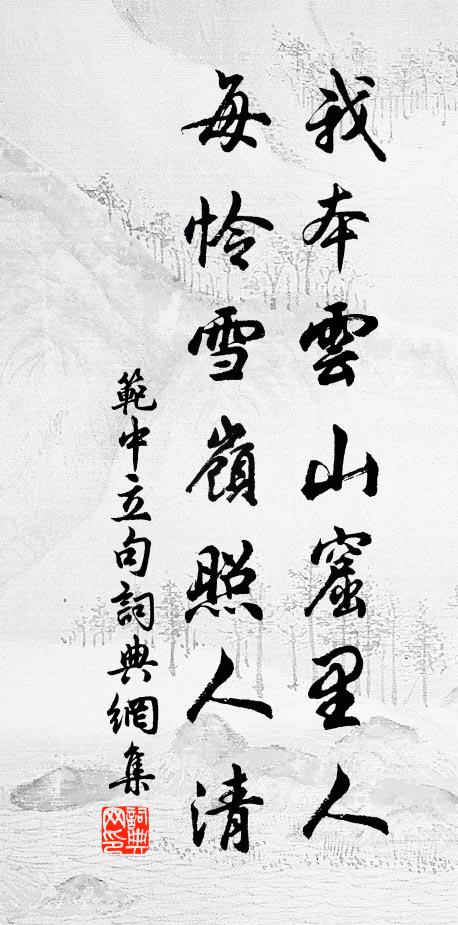 我本雲山窟里人
每怜雪嶺照人清
範中立句詞典網集
詞典網印